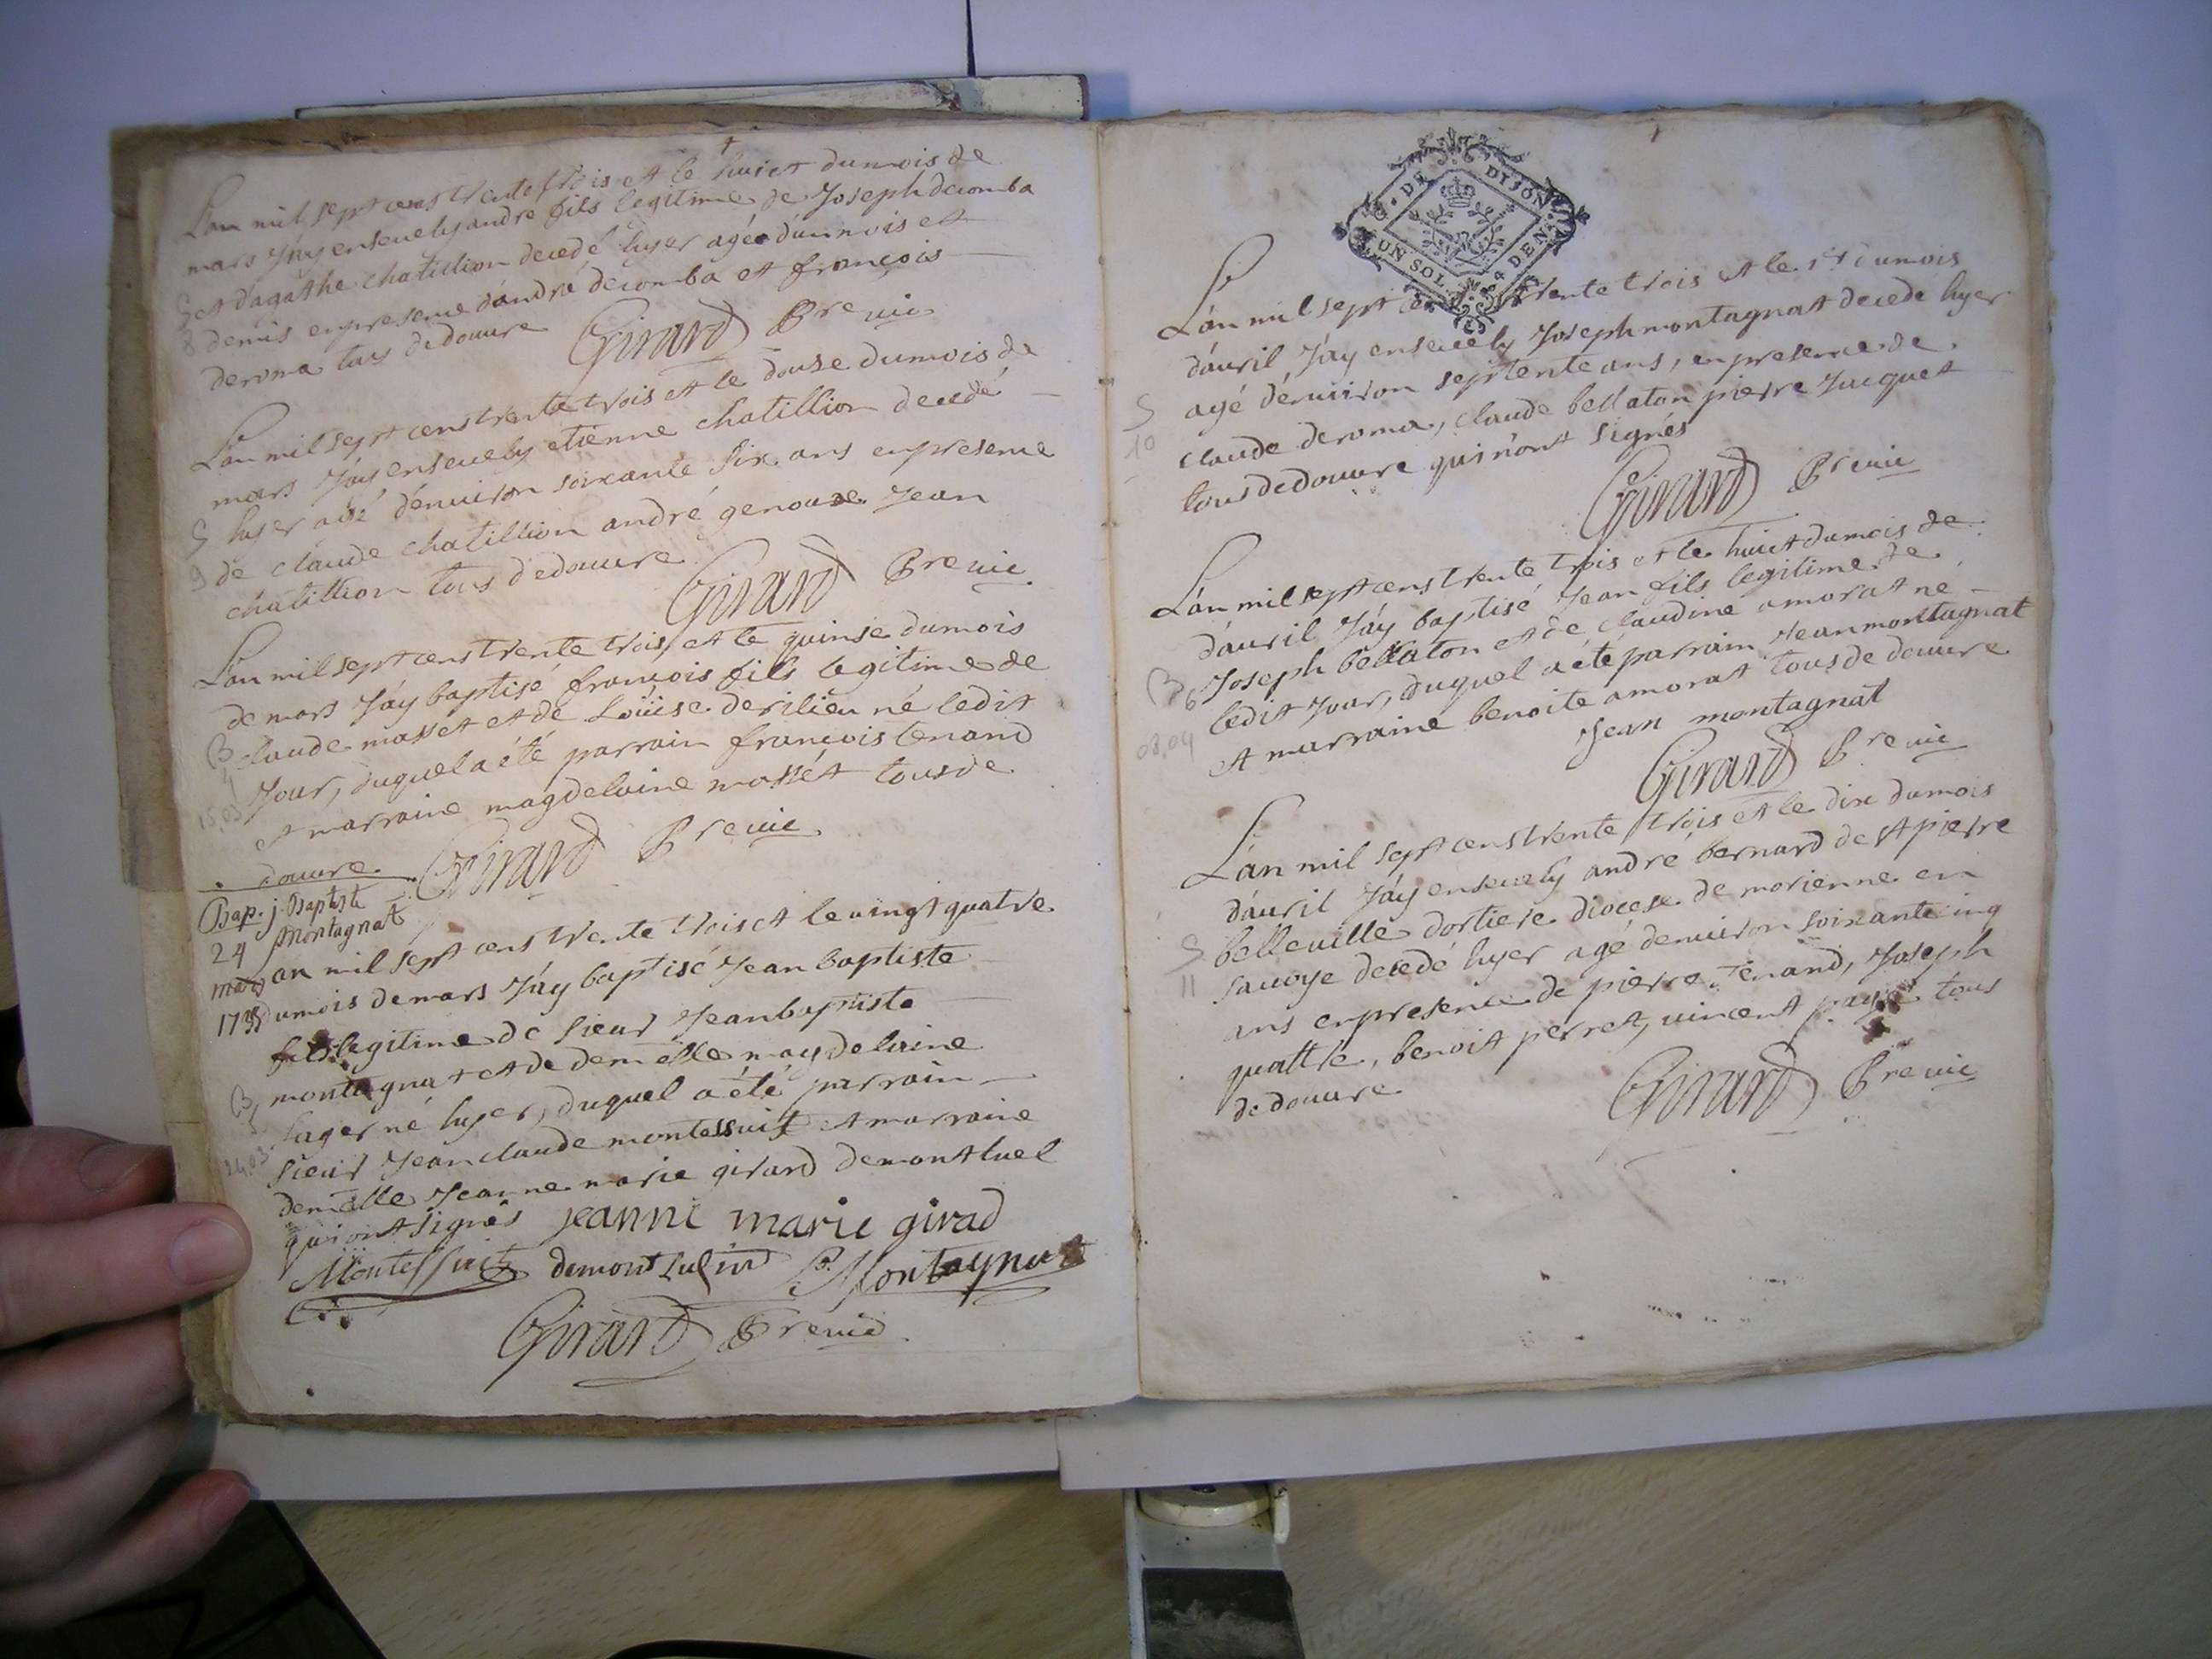 L'an mil sept cens trente trois et le huict du mois de
mars J'ay enseuely andre fils legitime de Joseph decomba
S et d'agathe chatillion decedé hyer agé d'un mois et
8 demis en presence d'andré decomba et francois
deroma tous de douure Girard Pre vic
L'an mil sept cens trente trois et le douse du mois de
mars J'ay enseuely etienne chatillion decedé
S hyer agé d'enuiron soixante six ans en presence
9 de claude chatillion andré genoux Jean
chatillion tous de douure Girard Pre vic
L'an mil sept cens trente trois et le quinse du mois
de mars J'ay baptisé francois fils legitime de
B claude masset et de Loüise derilieu né ledit
4 Jour, duquel a été parrain francois tenand
15.03 et marraine magdelaine massét tous de
douure. Girard Pre vic
Bap. j. Baptiste
24 Montagnat
mars an mil sept cens trente trois et le vingt quatre
1733 du mois de mars J'ay baptisé Jean baptiste
fils legitime de sieur Jean baptiste
B montagnat et de demelle magdelaine
5 sager né hyer, duquel a été parrain
24.03 sieur Jean claude montessuit et marraine
demelle Jeanne marie girard demontluel
qui ont signés jeanne marie girad
Montessuit demont Luel Montagnat
Girard Pre vic
G. DE DIJON
UN SOL. 4 DEN.
L'an mil sept cens trente trois et le 1er du mois
d'auril J'ay enseuely Joseph montagnat decedé hyer
S agé d'enuiron septente ans, en presence de
10 claude deroma, claude bellaton pierre Jacquet
tous de douure qui n'ont signés
Girard Pre vic
L'an mil sept cens trente trois et le huict du mois de
d'auril J'ay baptisé Jean fils legitime de
B Joseph bellaton et de claudine amorat né
6 ledit Jour, duquel a été parrain Jean montagnat
08.04 et marraine benoite amorat tous de douure
Jean montagnat
Girard Pre vic
L'an mil sept cens trente trois et le dix du mois
d'auril J'ay enseuely andré bernard de st pierre
S belleuille dortiere diocese de morienne en
11 sauoye decedé hyer agé d'enuiron soixante cinq
ans en presence de pierre tenand, Joseph
quattre, benoit perret, vincent paysé tous
de douure
Girard Pre vic